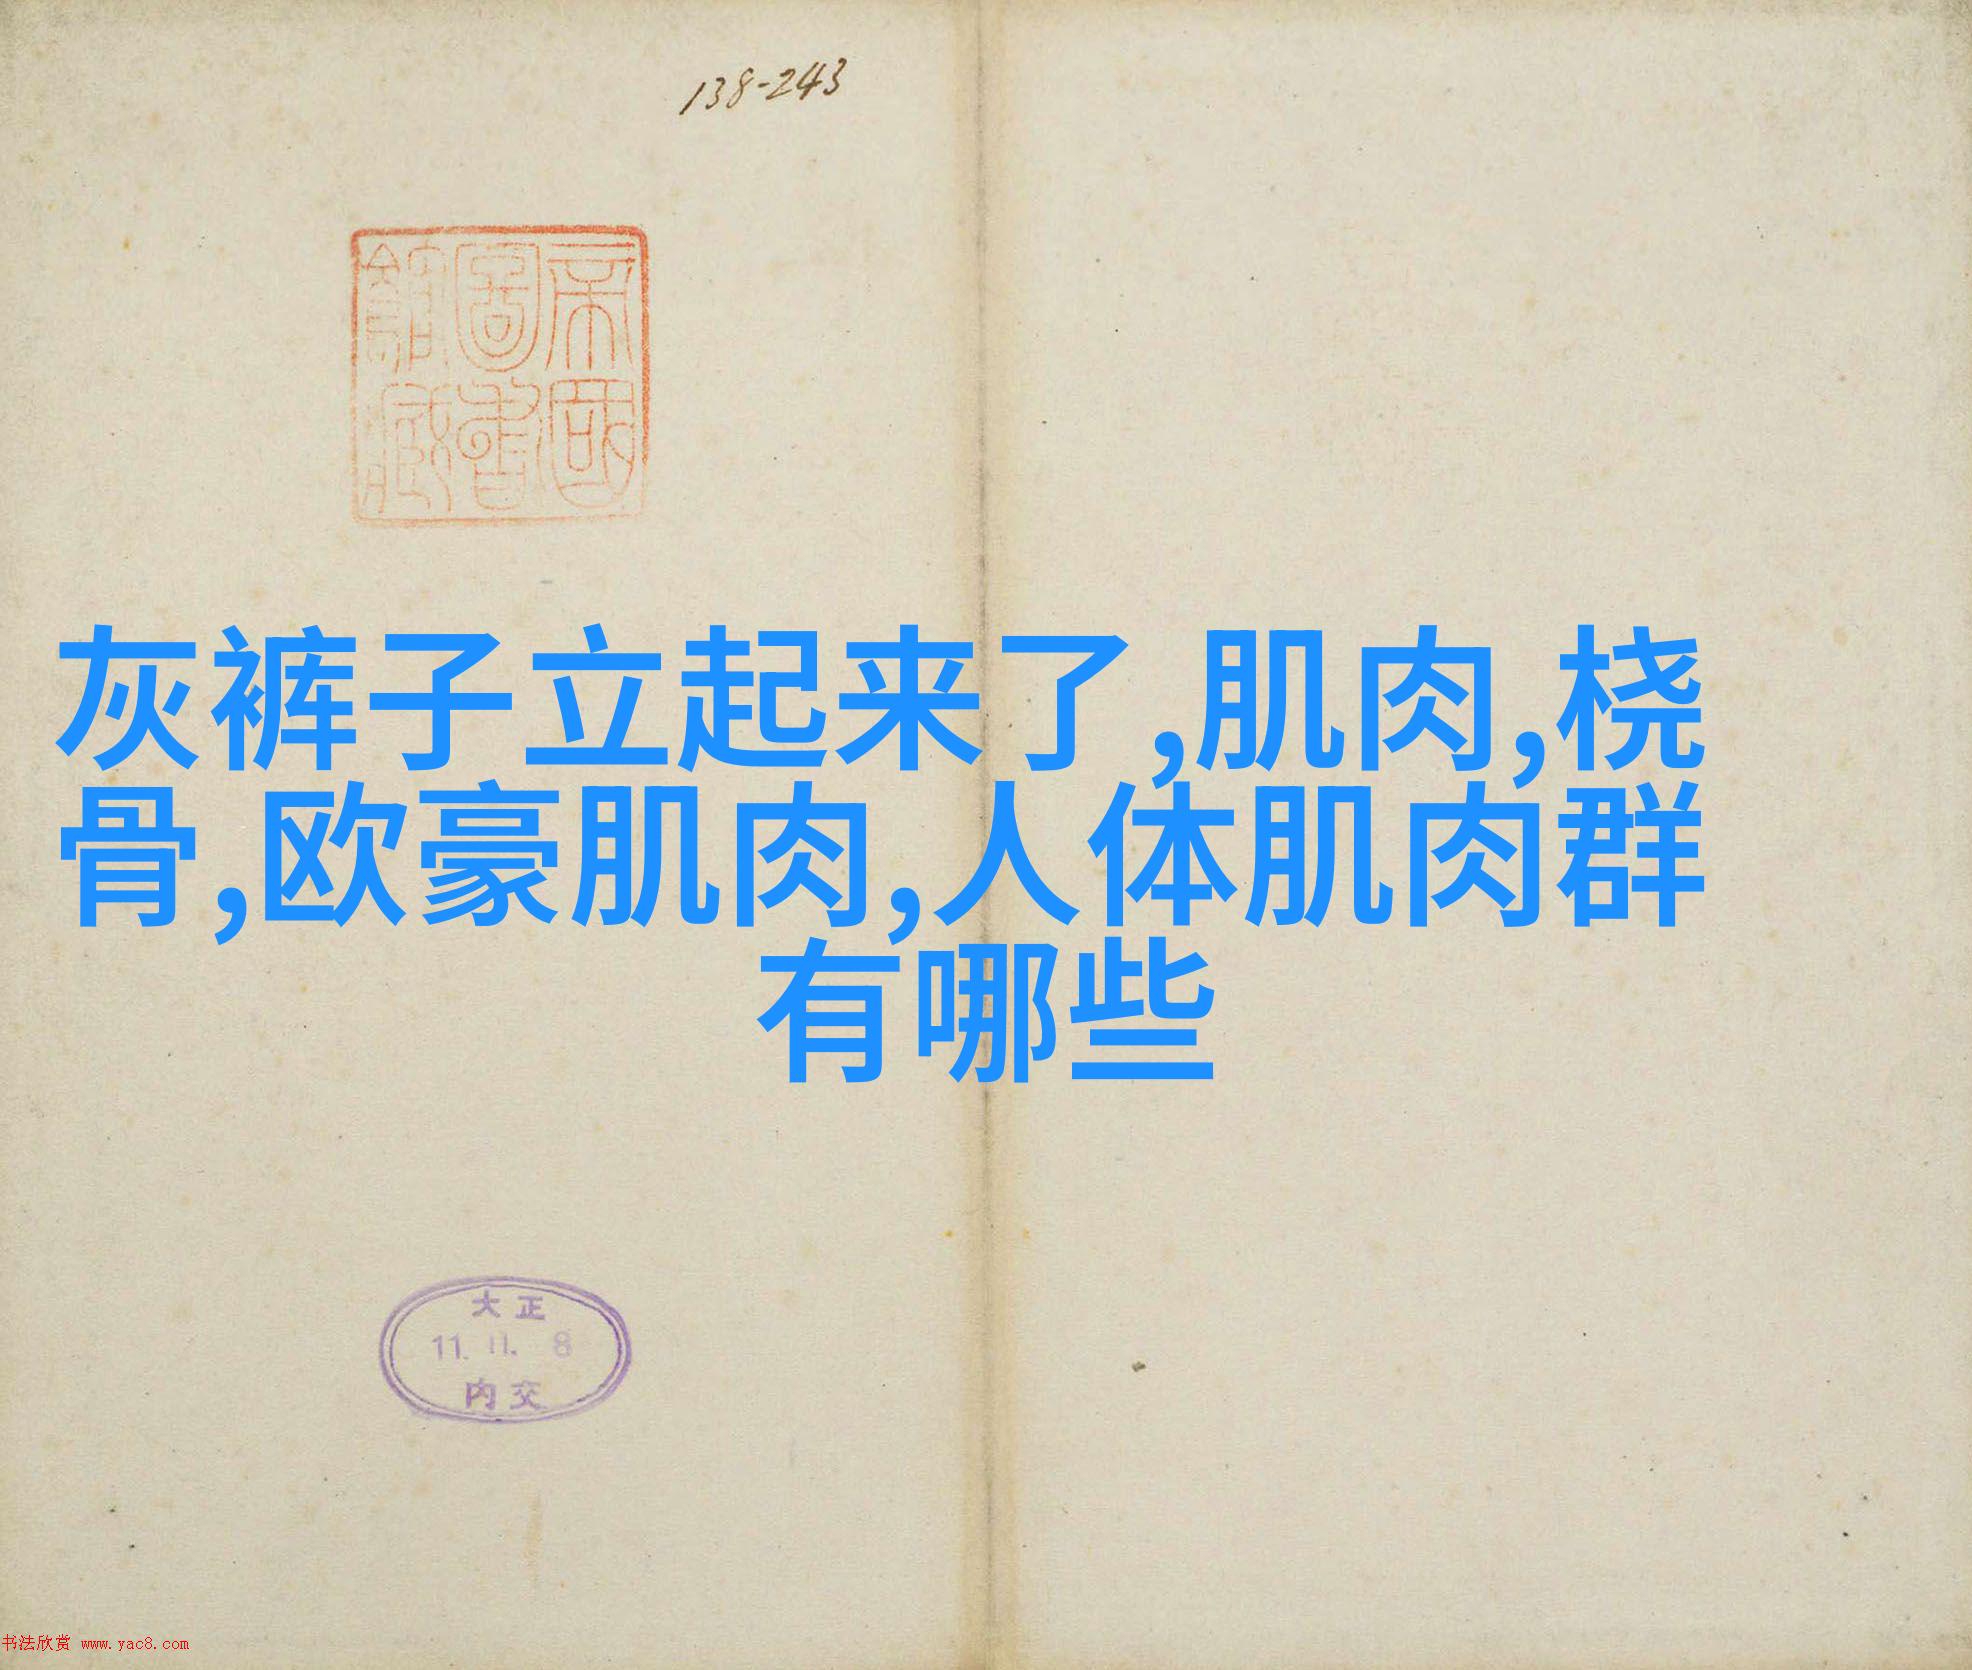 138-243
帝國
圖書
館藏
灰裤子立起来了,肌肉,桡
骨,欧豪肌肉,人体肌肉群
有哪些
大正
11.11.8
内交
书法欣赏 www.yac8.com